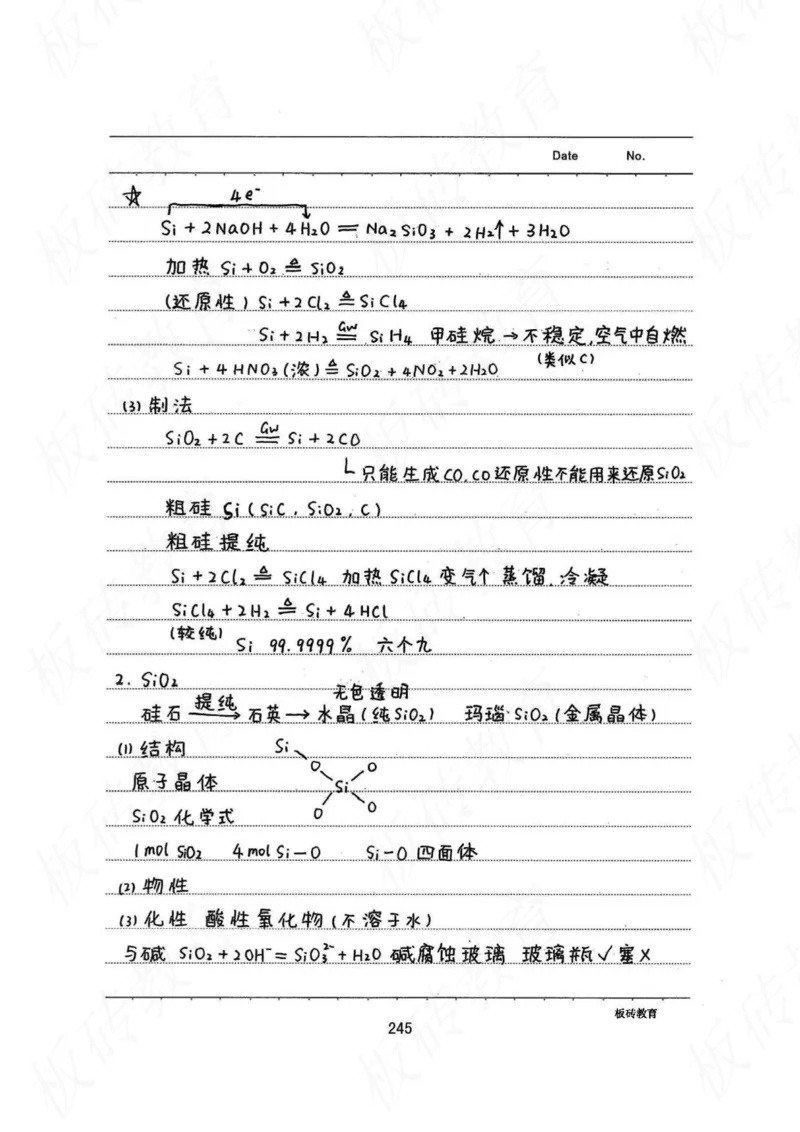 Date No.
☆ 4e⁻
Si + 2NaOH + 4H₂O == Na₂SiO₃ + 2H₂↑ + 3H₂O
加热 Si + O₂ ≜ SiO₂
(还原性) Si + 2Cl₂ ≜ SiCl₄
Si + 2H₂ =Gw= SiH₄ 甲硅烷 → 不稳定,空气中自燃
(类似C)
Si + 4HNO₃(浓) ≜ SiO₂ + 4NO₂ + 2H₂O
(3) 制法
SiO₂ + 2C =Gw= Si + 2CO
└ 只能生成CO, CO还原性不能用来还原SiO₂
粗硅 Si (SiC, SiO₂, C)
粗硅提纯
Si + 2Cl₂ ≜ SiCl₄ 加热 SiCl₄ 变气个 蒸馏.冷凝
SiCl₄ + 2H₂ ≜ Si + 4HCl
(较纯)
Si 99.9999% 六个九
2. SiO₂
无色透明
硅石 —提纯→ 石英 → 水晶(纯SiO₂) 玛瑙·SiO₂(金属晶体)
(1) 结构 Si
原子晶体 O O
Si
SiO₂ 化学式 O O
1mol SiO₂ 4mol Si—O Si—O 四面体
(2) 物性
(3) 化性 酸性氧化物(不溶于水)
与碱 SiO₂ + 2OH⁻ = SiO₃²⁻ + H₂O 碱腐蚀玻璃 玻璃瓶√ 塞×
板砖教育
245